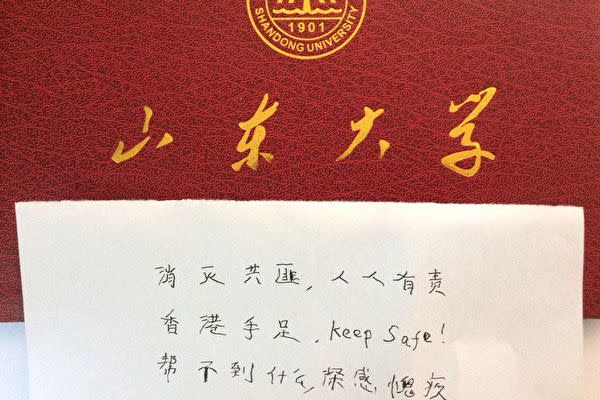 SHANDONG UNIVERSITY
1901
山东大学
消灭共匪，人人有责
香港手足，keep safe!
帮不到什么，深感愧疚